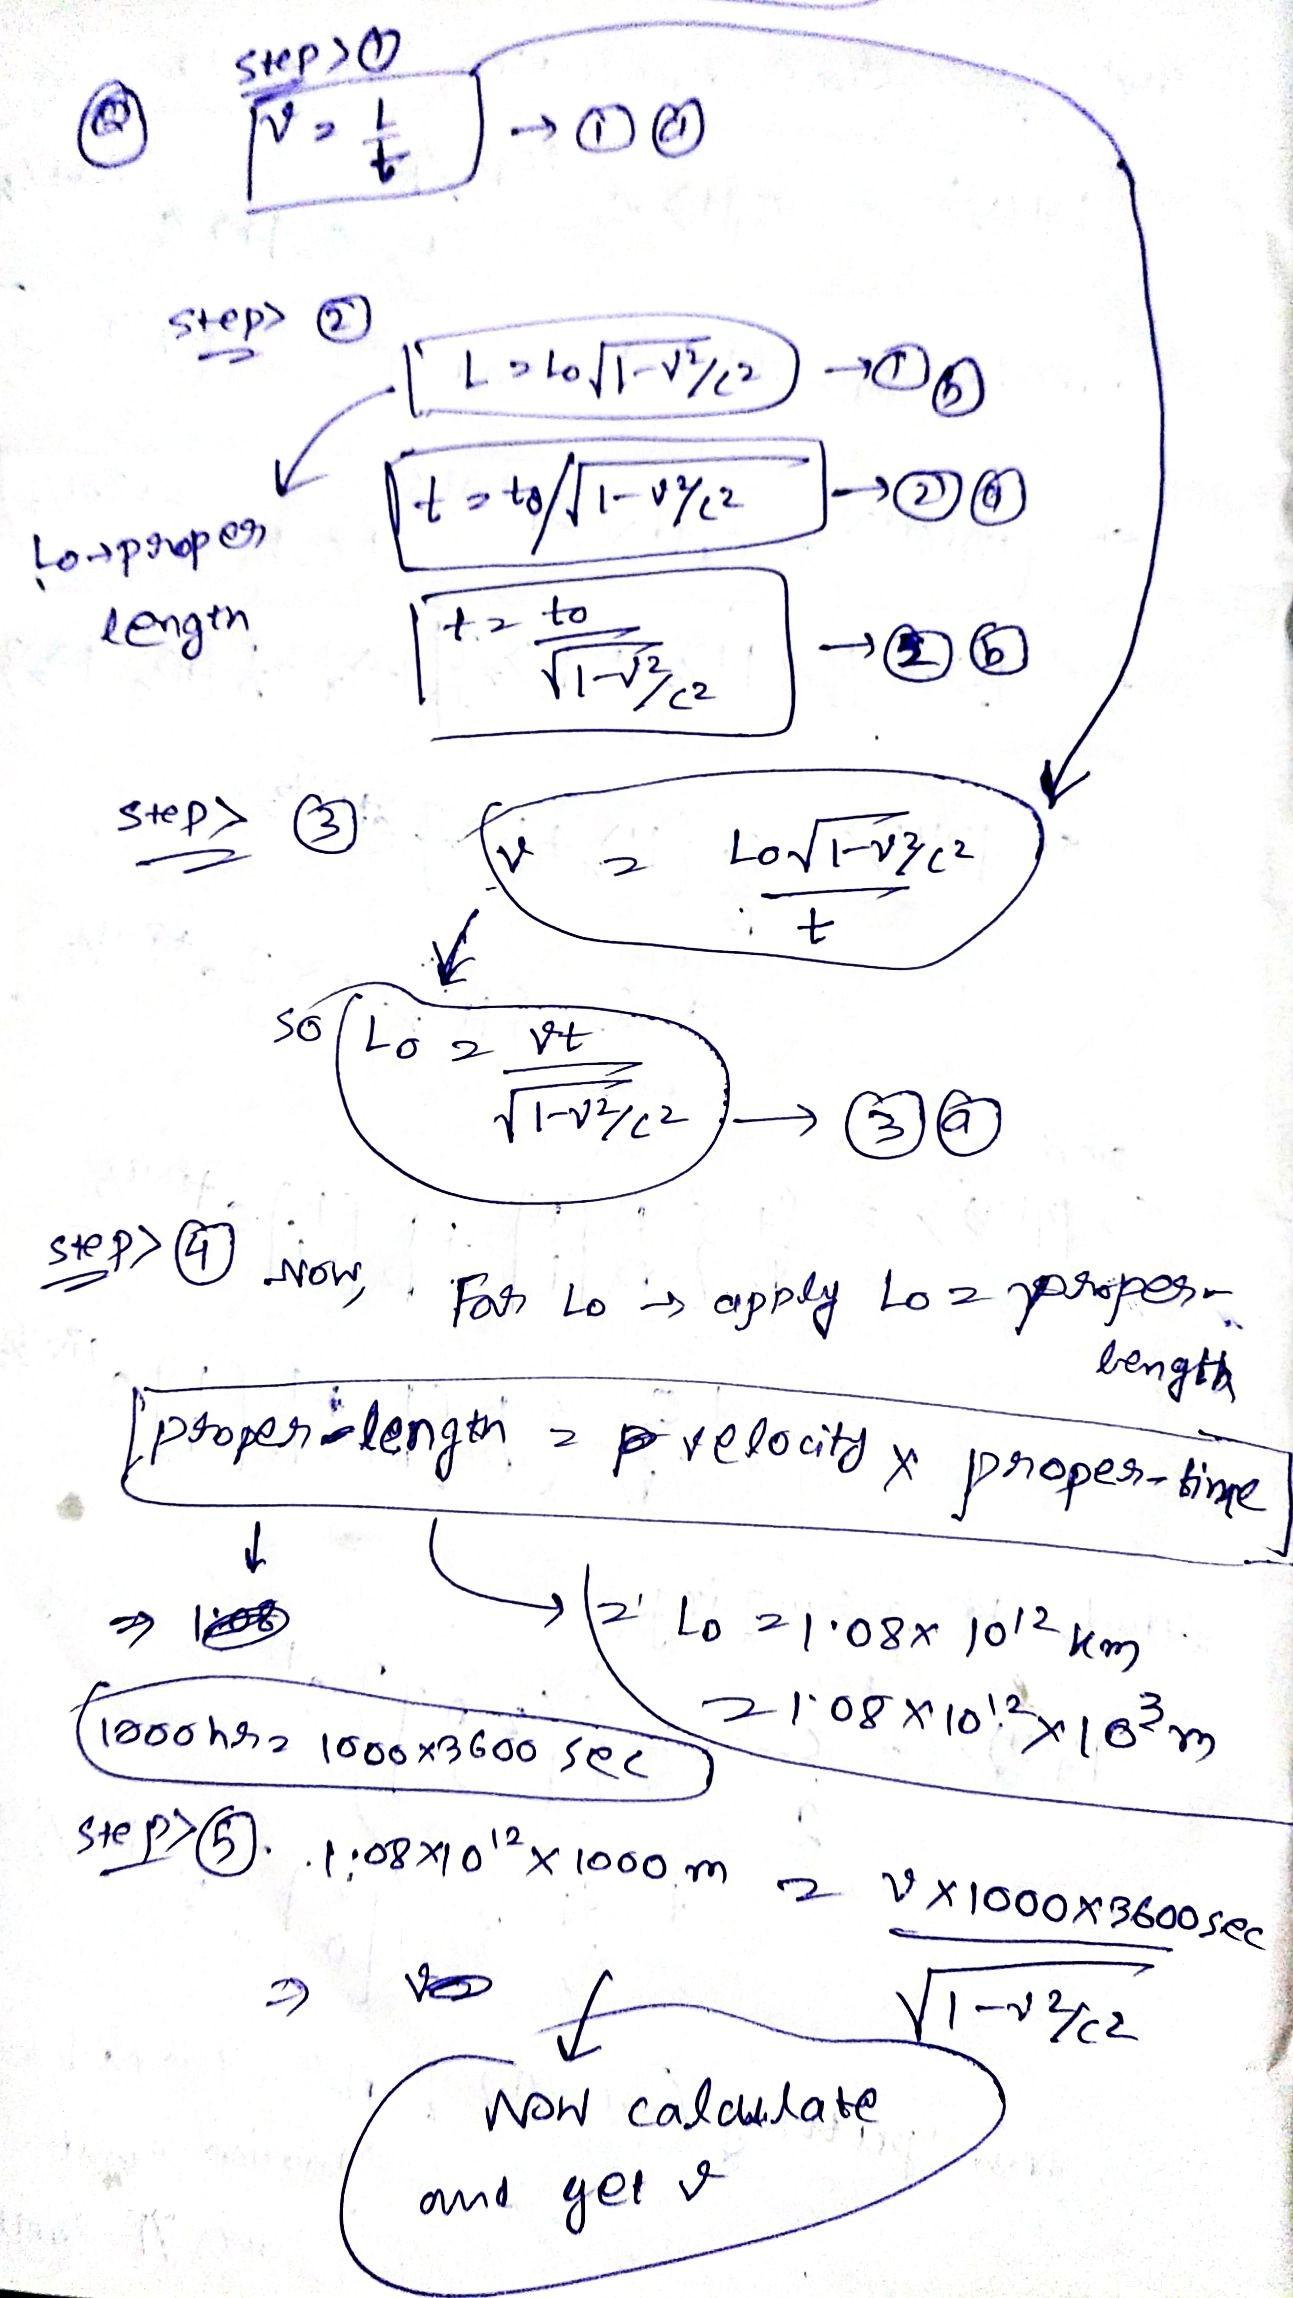 step> ①
Q v = L/t → ① ⓐ
step> ②
L = Lo√1-v²/c² → ① ⓑ
t = to/√1-v²/c² → ② ⓐ
Lo→proper
length
t = to/√1-v²/c² → ② ⓑ
step> ③ v = Lo√1-v²/c² / t
so Lo = vt/√1-v²/c² → ③ ⓐ
step> ④ Now, For Lo → apply Lo = proper-
length
proper-length = velocity x proper-time
⇒ 1.08
= Lo = 1.08 x 10¹² km
= 1.08 x 10¹² x 10³ m
1000 hr = 1000x3600 sec
step> ⑤ 1.08x10¹² x 1000 m = v x 1000 x 3600 sec / √1-v²/c²
⇒ v
Now calculate
and get v